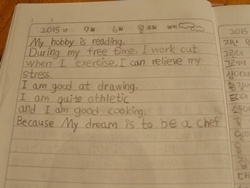 2015년 9월 6일
My hobby is reading.
During my free time, I work out
when I exercise, I can relieve my
stress.
I am good at drawing.
I am quite athletic
and I am good cooking.
Because My dream is to be a chef
2015